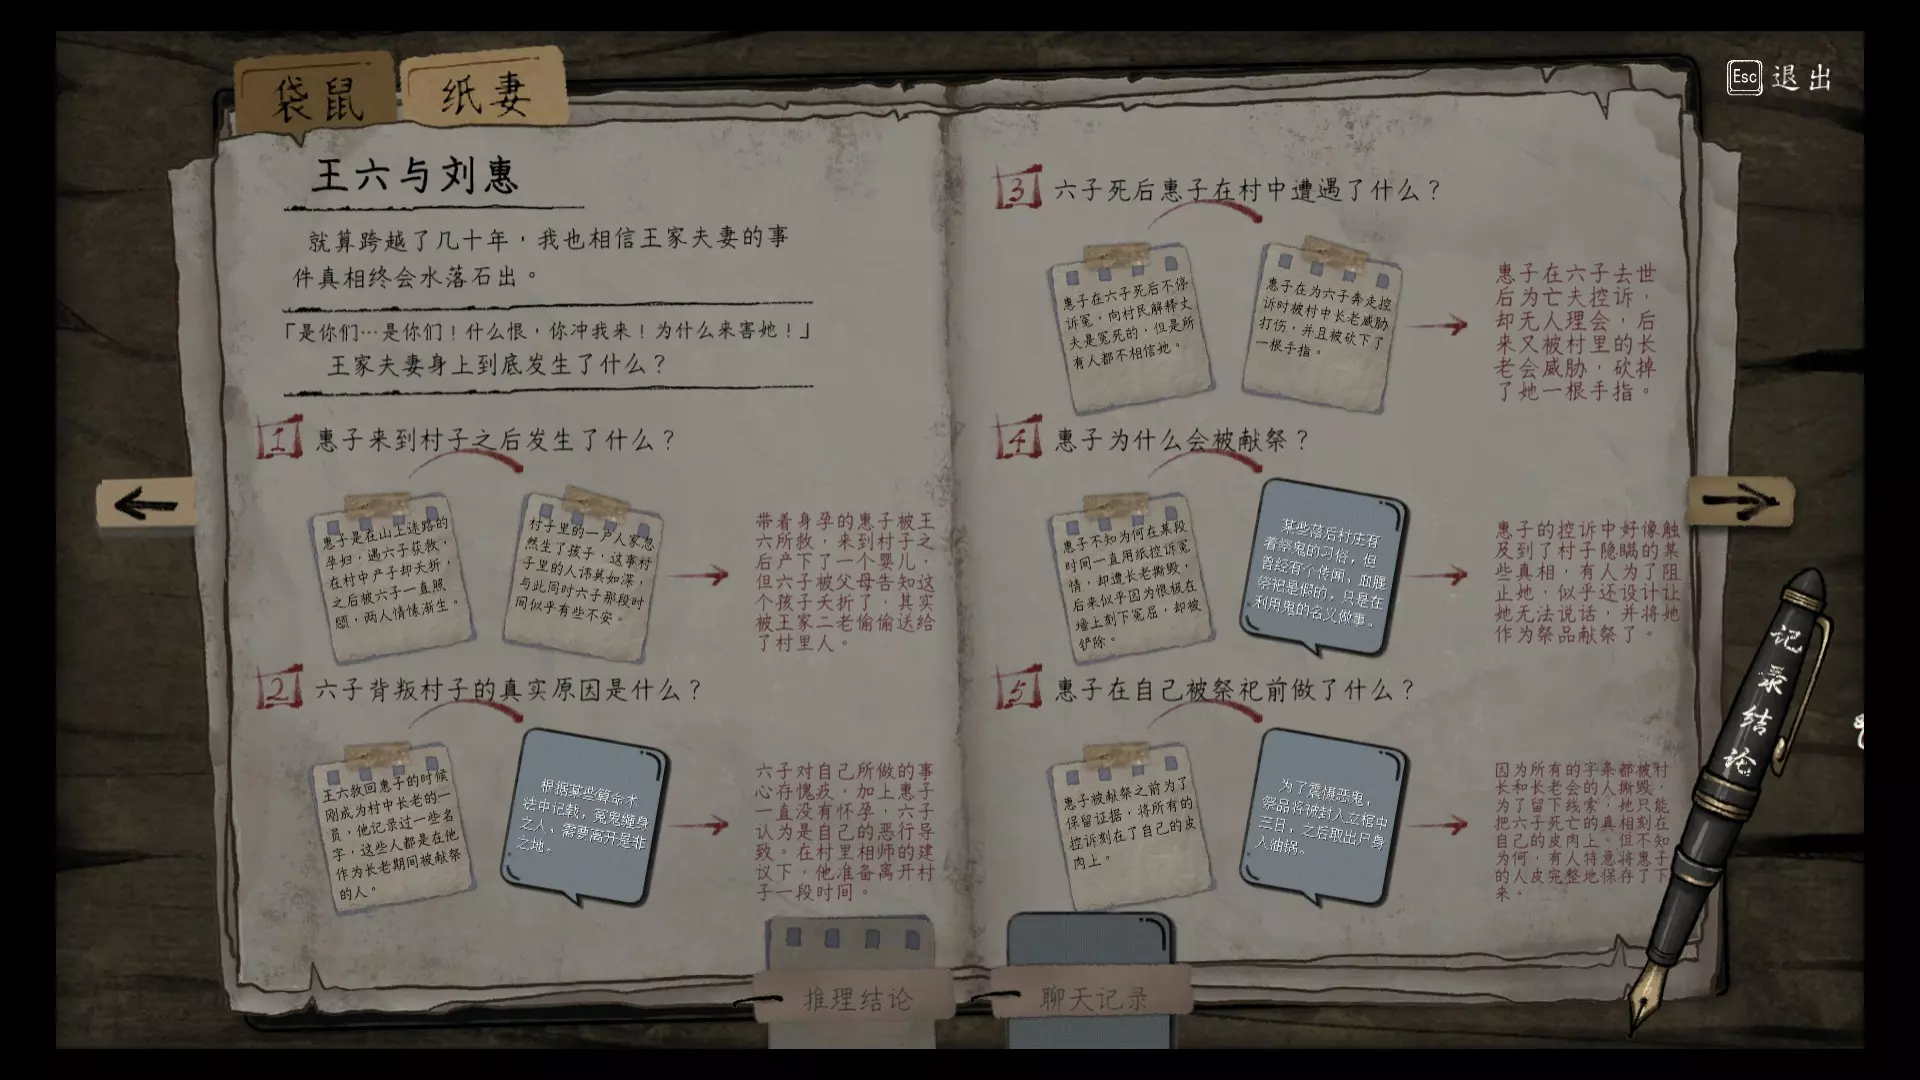 袋鼠
纸妻
Esc 退出
王六与刘惠
就算跨越了几十年，我也相信王家夫妻的事
件真相终会水落石出。
「是你们…是你们！什么恨，你冲我来！为什么来害她！」
王家夫妻身上到底发生了什么？
1 惠子来到村子之后发生了什么？
惠子是在山上迷路的
孕妇，遇六子获救，
在村中产子却夭折，
之后被六子一直照
顾，两人情愫渐生。
村子里的一户人家忽
然生了孩子，这事村
子里的人讳莫如深，
与此同时六子那段时
间似乎有些不安。
带着身孕的惠子被王
六所救，来到村子之
后产下了一个婴儿，
但六子被父母告知这
个孩子夭折了，其实
被王家二老偷偷送给
了村里人。
2 六子背叛村子的真实原因是什么？
王六救回惠子的时候
刚成为村中长老的一
员，他记录过一些名
字，这些人都是在他
作为长老期间被献祭
的人。
根据某些算命术
法中记载，冤鬼缠身
之人，需要离开是非
之地。
六子对自己所做的事
心存愧疚，加上惠子
一直没有怀孕，六子
认为是自己的恶行导
致。在村里相师的建
议下，他准备离开村
子一段时间。
3 六子死后惠子在村中遭遇了什么？
惠子在六子死后不停
诉冤，向村民解释丈
夫是冤死的，但是所
有人都不相信她。
惠子在为六子奔走控
诉时被村中长老威胁
打伤，并且被砍下了
一根手指。
惠子在六子去世
后为亡夫控诉，
却无人理会，后
来又被村里的长
老会威胁，砍掉
了她一根手指。
4 惠子为什么会被献祭？
惠子不知为何在某段
时间一直用纸控诉冤
情，却遭长老撕毁，
后来似乎因为恨极在
墙上刻下冤屈，却被
铲除。
某些落后村庄有
着祭鬼的习俗，但
曾经有个传闻，血腥
祭祀是假的，只是在
利用鬼的名义做事。
惠子的控诉中好像触
及到了村子隐瞒的某
些真相，有人为了阻
止她，似乎还设计让
她无法说话，并将她
作为祭品献祭了。
5 惠子在自己被祭祀前做了什么？
惠子被献祭之前为了
保留证据，将所有的
控诉刻在了自己的皮
肉上。
为了震慑恶鬼，
祭品将被封入立棺中
三日，之后取出尸身
入油锅。
因为所有的字条都被村
长和长老会的人撕毁，
为了留下线索，她只能
把六子死亡的真相刻在
自己的皮肉上。但不知
为何，有人特意将惠子
的人皮完整地保存了下
来。
记录结论
推理结论
聊天记录